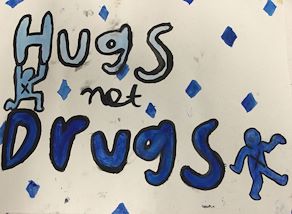 Hugs
not
Drugs